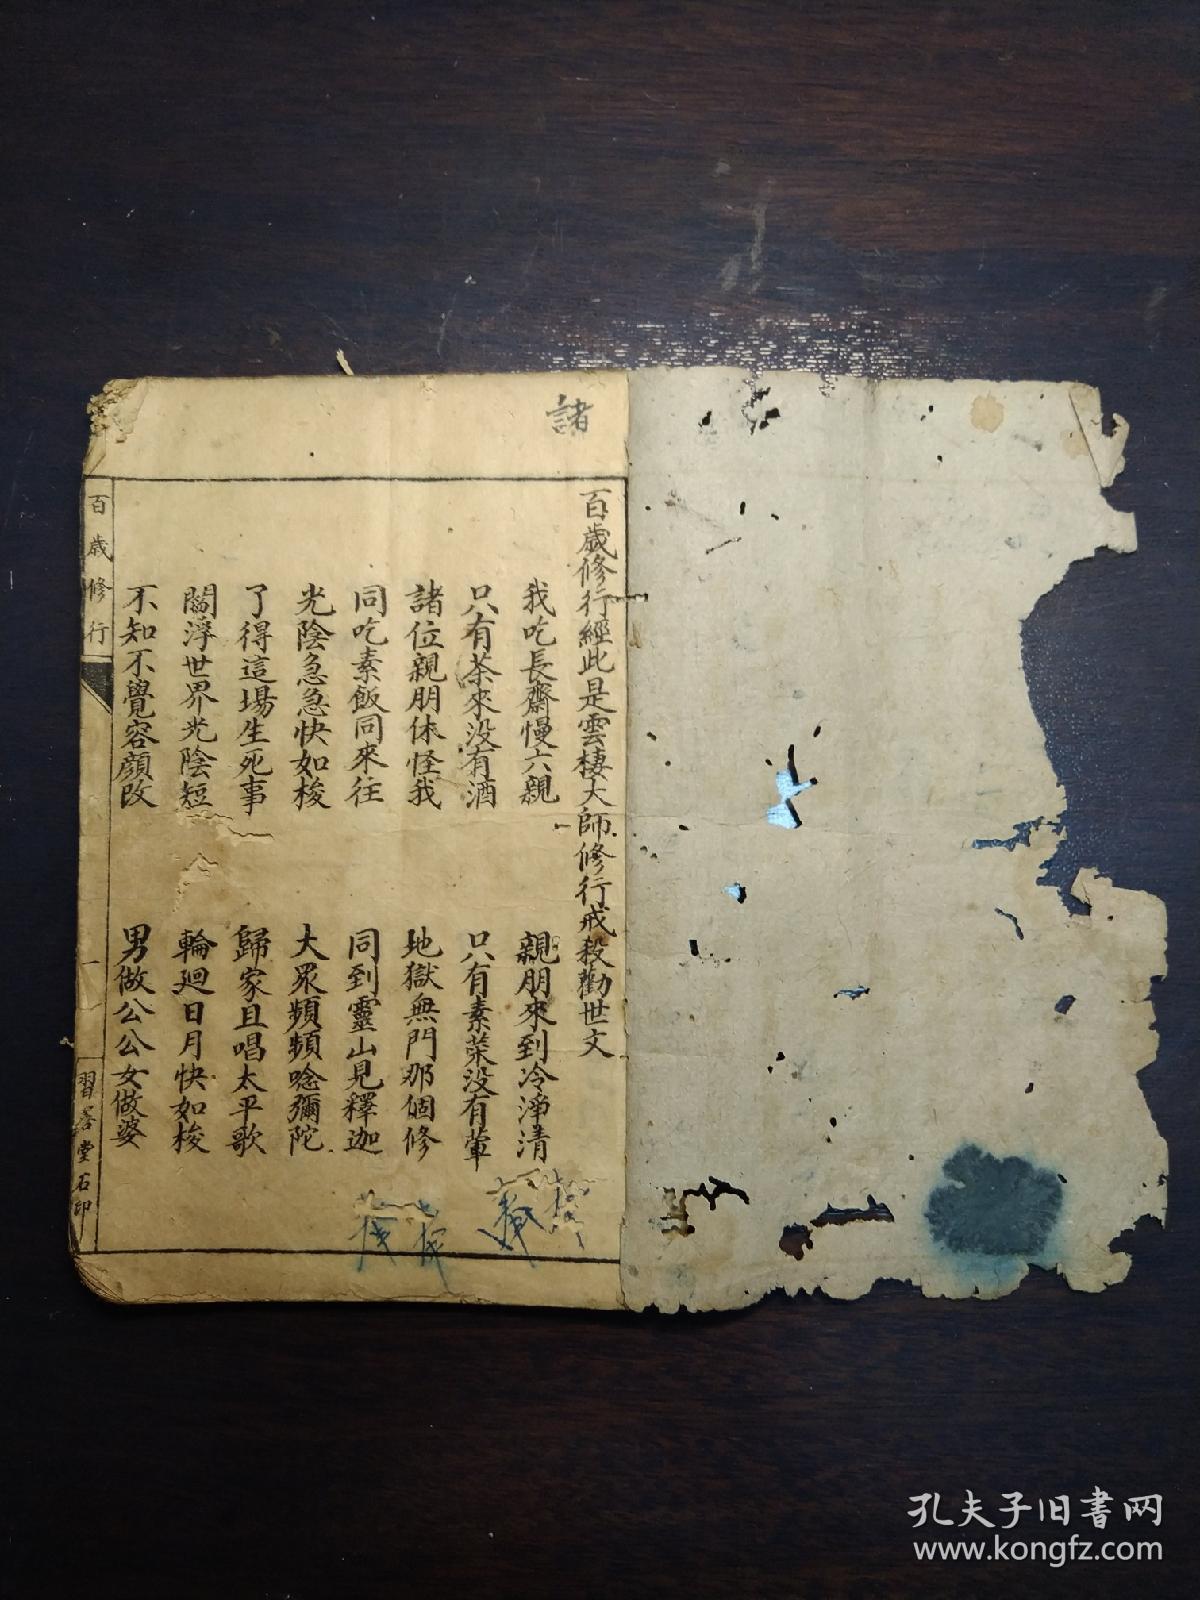 諸
百歲修行經此是雲棲大師修行戒殺勸世文
我吃長齋慢六親　親朋來到冷淨清
只有茶來没有酒　只有素菜没有葷
諸位親朋休怪我　地獄無門那個修
同吃素飯同來往　同到靈山見釋迦
光陰急急快如梭　大眾頻頻唸彌陀
了得這場生死事　歸家且唱太平歌
閻浮世界光陰短　輪廻日月快如梭
不知不覺容顏改　男做公公女做婆
百歲修行
一
習善堂石印
孔夫子旧書网
www.kongfz.com